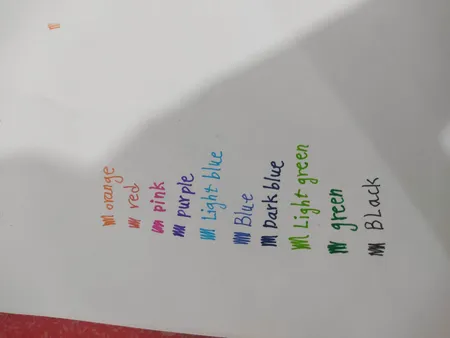 orange
red
pink
purple
Light blue
Blue
Dark blue
Light green
green
BLack